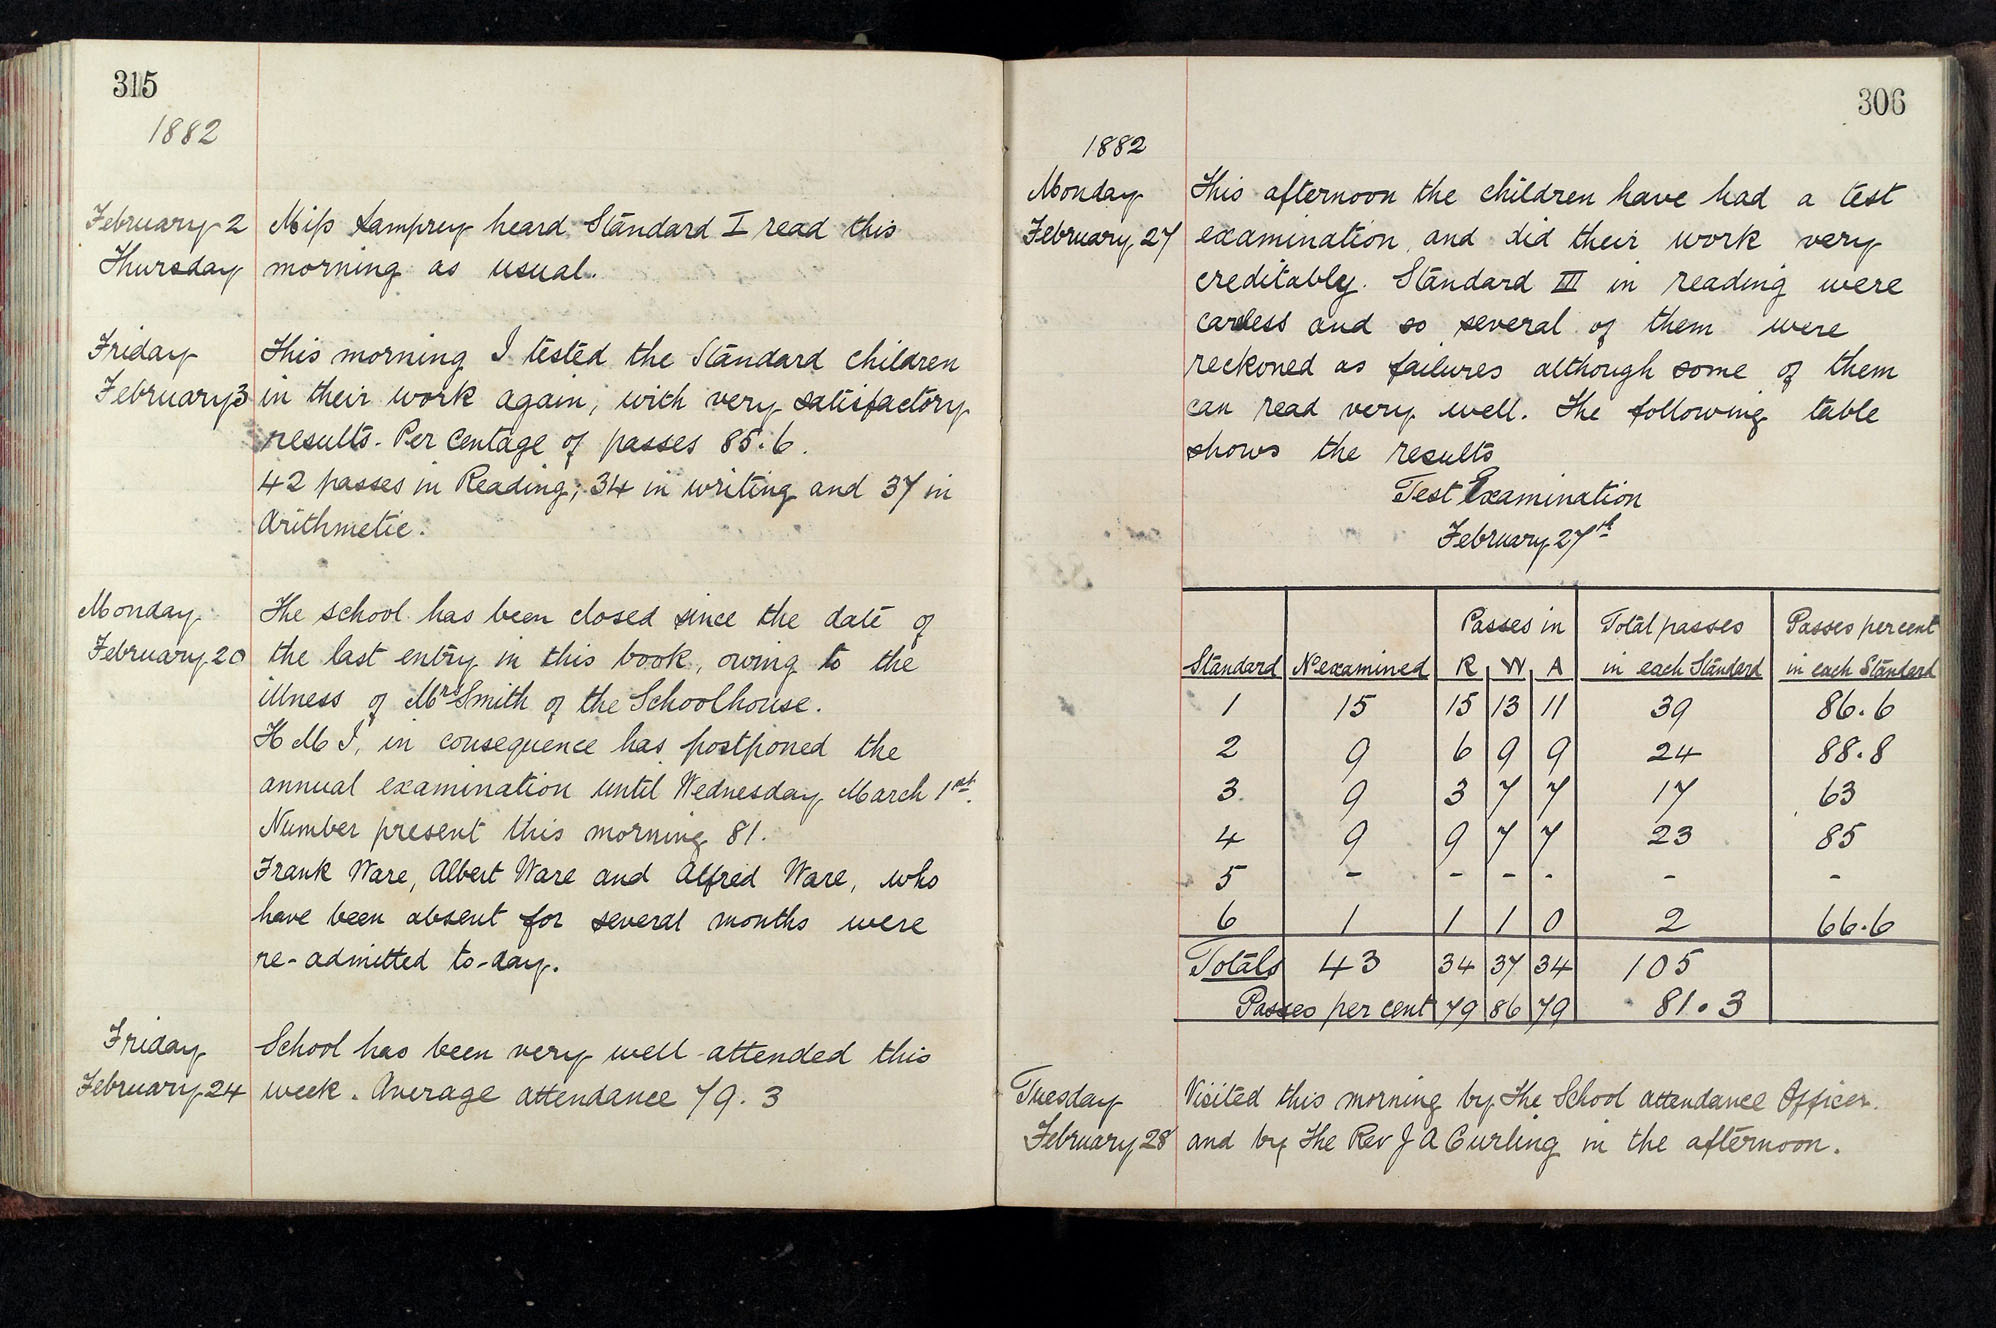 315
1882
February 2 Miss Lamprey heard Standard I read this
Thursday morning as usual.
Friday This morning I tested the Standard children
February 3 in their work again, with very satisfactory
results. Per Centage of passes 85.6.
42 passes in Reading; 34 in writing and 37 in
Arithmetic.
Monday The school has been closed since the date of
February 20 the last entry in this book, owing to the
illness of Mrs Smith of the Schoolhouse.
H M I, in consequence has postponed the
annual examination until Wednesday March 1st.
Number present this morning 81.
Frank Ware, Albert Ware and Alfred Ware, who
have been absent for several months were
re-admitted to-day.
Friday School has been very well attended this
February 24 week. Average attendance 79.3
306
1882
Monday This afternoon the children have had a test
February 27 examination, and did their work very
creditably. Standard III in reading were
careless and so several of them were
reckoned as failures although some of them
can read very well. The following table
shows the results
Test Examination
February 27th
Passes in Total passes Passes per cent
Standard No examined R W A in each Standard in each Standard
1 15 15 13 11 39 86.6
2 9 6 9 9 24 88.8
3 9 3 7 7 17 63
4 9 9 7 7 23 85
5 - - - - - -
6 1 1 1 0 2 66.6
Totals 43 34 37 34 105
Passes per cent 79 86 79 81.3
Tuesday Visited this morning by the School attendance Officer.
February 28 and by the Rev J A Curling in the afternoon.